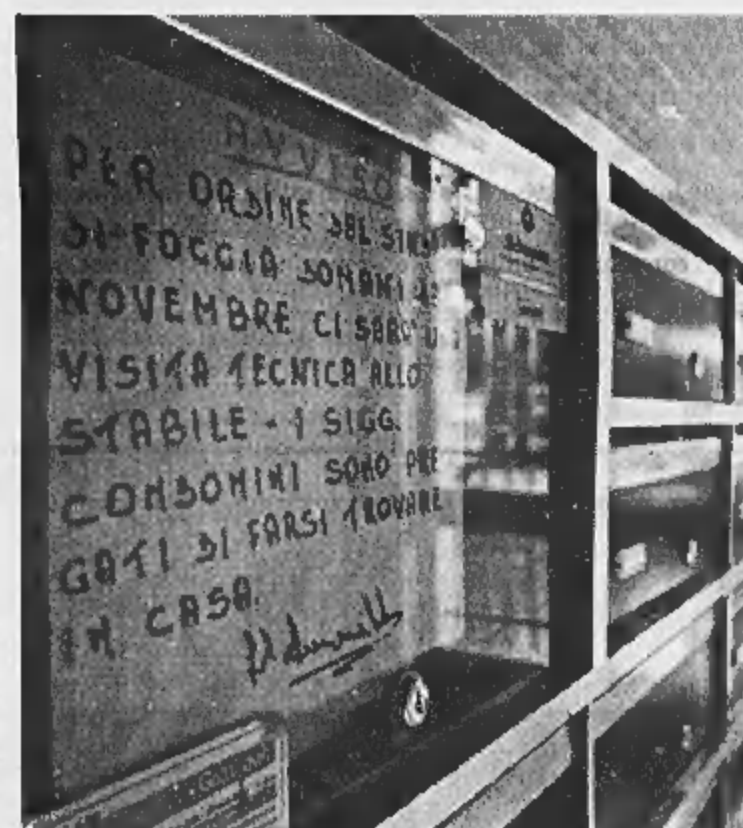 AVVISO
PER ORDINE DEL
DI FOGGIA DOMANI
NOVEMBRE CI SARA'
VISITA TECNICA ALLO
STABILE - I SIGG.
CONDOMINI SONO PRE
GATI DI FARSI TROVARE
IN CASA.